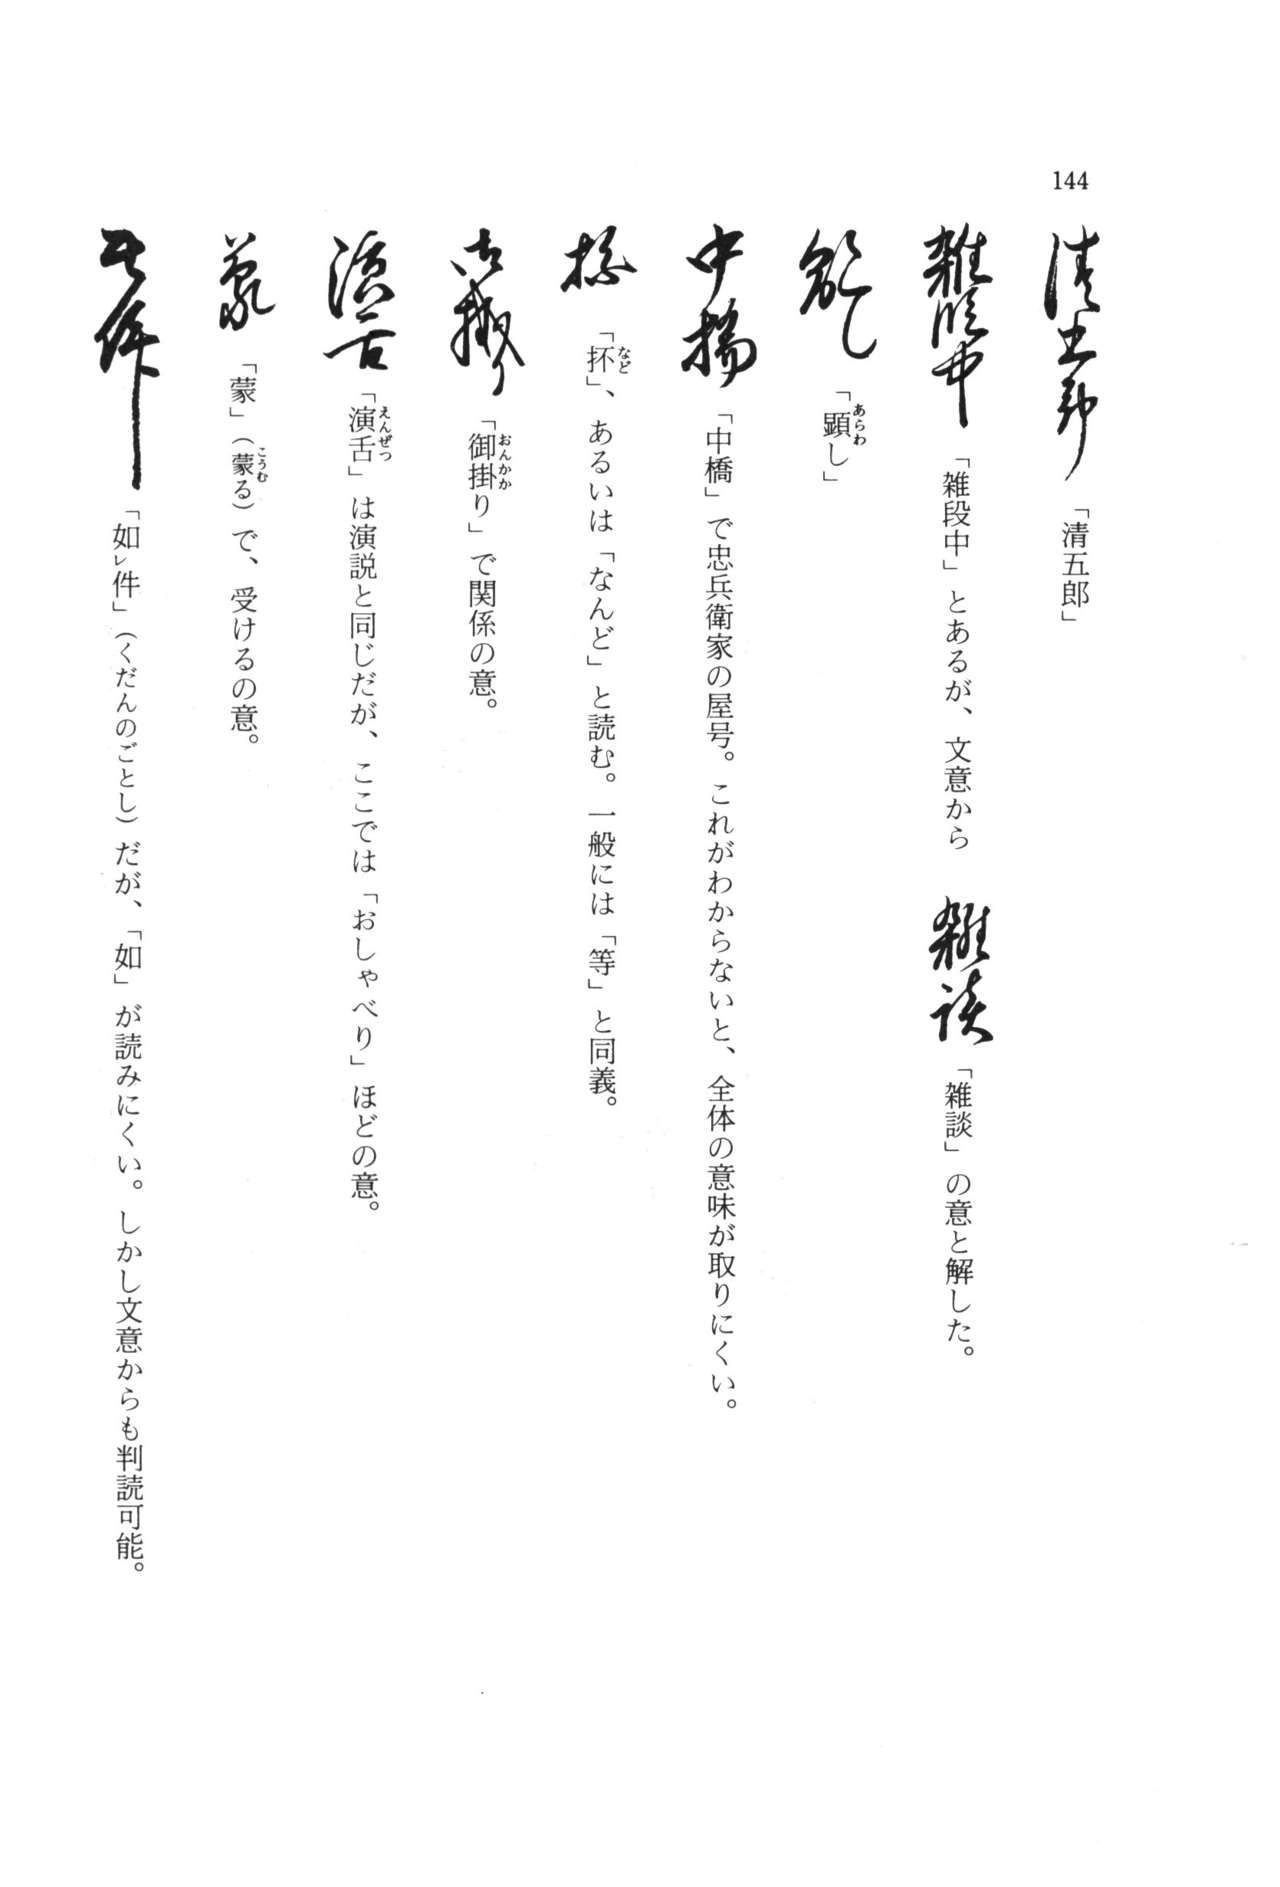 144
清五郎「清五郎」
雑段中「雑段中」とあるが、文意から 雑談「雑談」の意と解した。
顕し「顕し」
中橋「中橋」で忠兵衛家の屋号。これがわからないと、全体の意味が取りにくい。
抔「抔」、あるいは「なんど」と読む。一般には「等」と同義。
御掛り「御掛り」で関係の意。
演舌「演舌」は演説と同じだが、ここでは「おしゃべり」ほどの意。
蒙「蒙」（蒙る）で、受けるの意。
如件「如レ件」（くだんのごとし）だが、「如」が読みにくい。しかし文意からも判読可能。